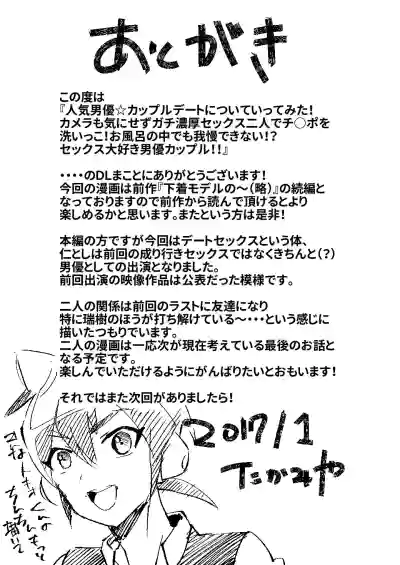 あとがき
この度は
『人気男優☆カップルデートについていってみた！
カメラも気にせずガチ濃厚セックス二人でチ○ポを
洗いっこ！お風呂の中でも我慢できない！？
セックス大好き男優カップル！！』
・・・・のDLまことにありがとうございます！
今回の漫画は前作『下着モデルの～（略）』の続編と
なっておりますので前作から読んで頂けるとより
楽しめるかと思います。またという方は是非！
本編の方ですが今回はデートセックスという体、
仁としは前回の成り行きセックスではなくきちんと（？）
男優としての出演となりました。
前回出演の映像作品は公表だった模様です。
二人の関係は前回のラストに友達になり
特に瑞樹のほうが打ち解けている～・・・という感じに
描いたつもりでいます。
二人の漫画は一応次が現在考えている最後のお話と
なる予定です。
楽しんでいただけるようにがんばりたいとおもいます！
それではまた次回がありましたら！
2017/1
たかみや